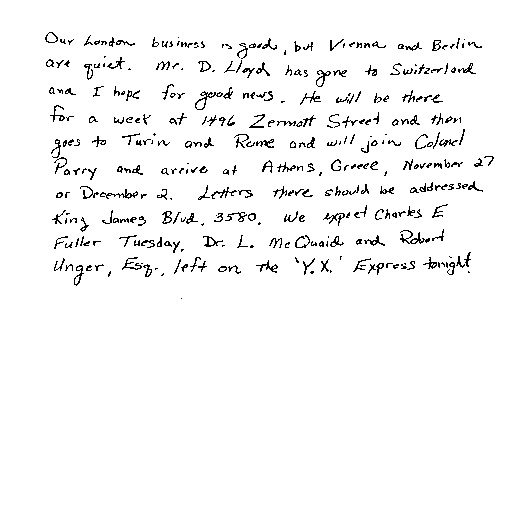 Our London business is good, but Vienna and Berlin
are quiet. Mr. D. Lloyd has gone to Switzerland
and I hope for good news. He will be there
for a week at 1496 Zermott Street and then
goes to Turin and Rome and will join Colonel
Parry and arrive at Athens, Greece, November 27
or December 2. Letters there should be addressed
King James Blvd. 3580. We expect Charles E
Fuller Tuesday. Dr. L. McQuaid and Robert
Unger, Esq., left on the 'Y.X.' Express tonight.